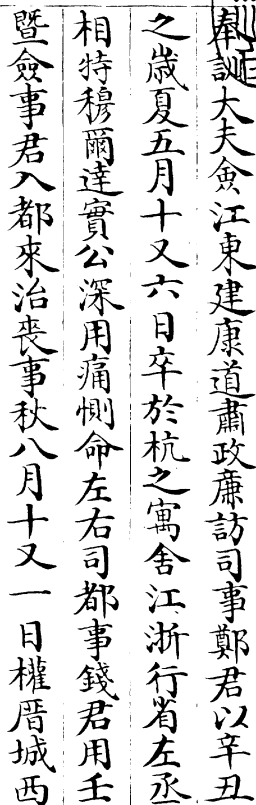 奉訓大夫僉江東建康道肅政廉訪司事鄭君以辛丑
之歲夏五月十又六日卒於杭之寓舍江浙行省左丞
相特穆爾達實公深用痛惻命左右司都事錢君用壬
暨僉事君入都來治喪事秋八月十又一日權厝城西